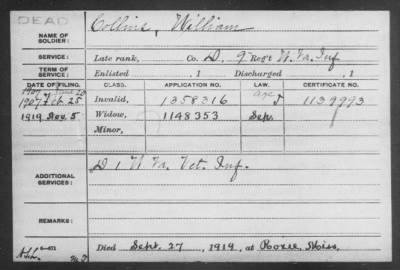 DEAD
NAME OF SOLDIER: Collins, William
SERVICE: Late rank, Co. D, 9 Reg't W. Va. Inf
TERM OF SERVICE: Enlisted , 1 Discharged , 1
DATE OF FILING. CLASS. APPLICATION NO. LAW. CERTIFICATE NO.
1907 Feb. 25 Invalid, 1358316 1139993
1919 Nov 5 Widow, 1148353 Sep.
Minor,
ADDITIONAL SERVICES: D 1 W Va. Vet. Inf.
REMARKS:
Died Sept. 27, 1919, at Roxie, Miss.